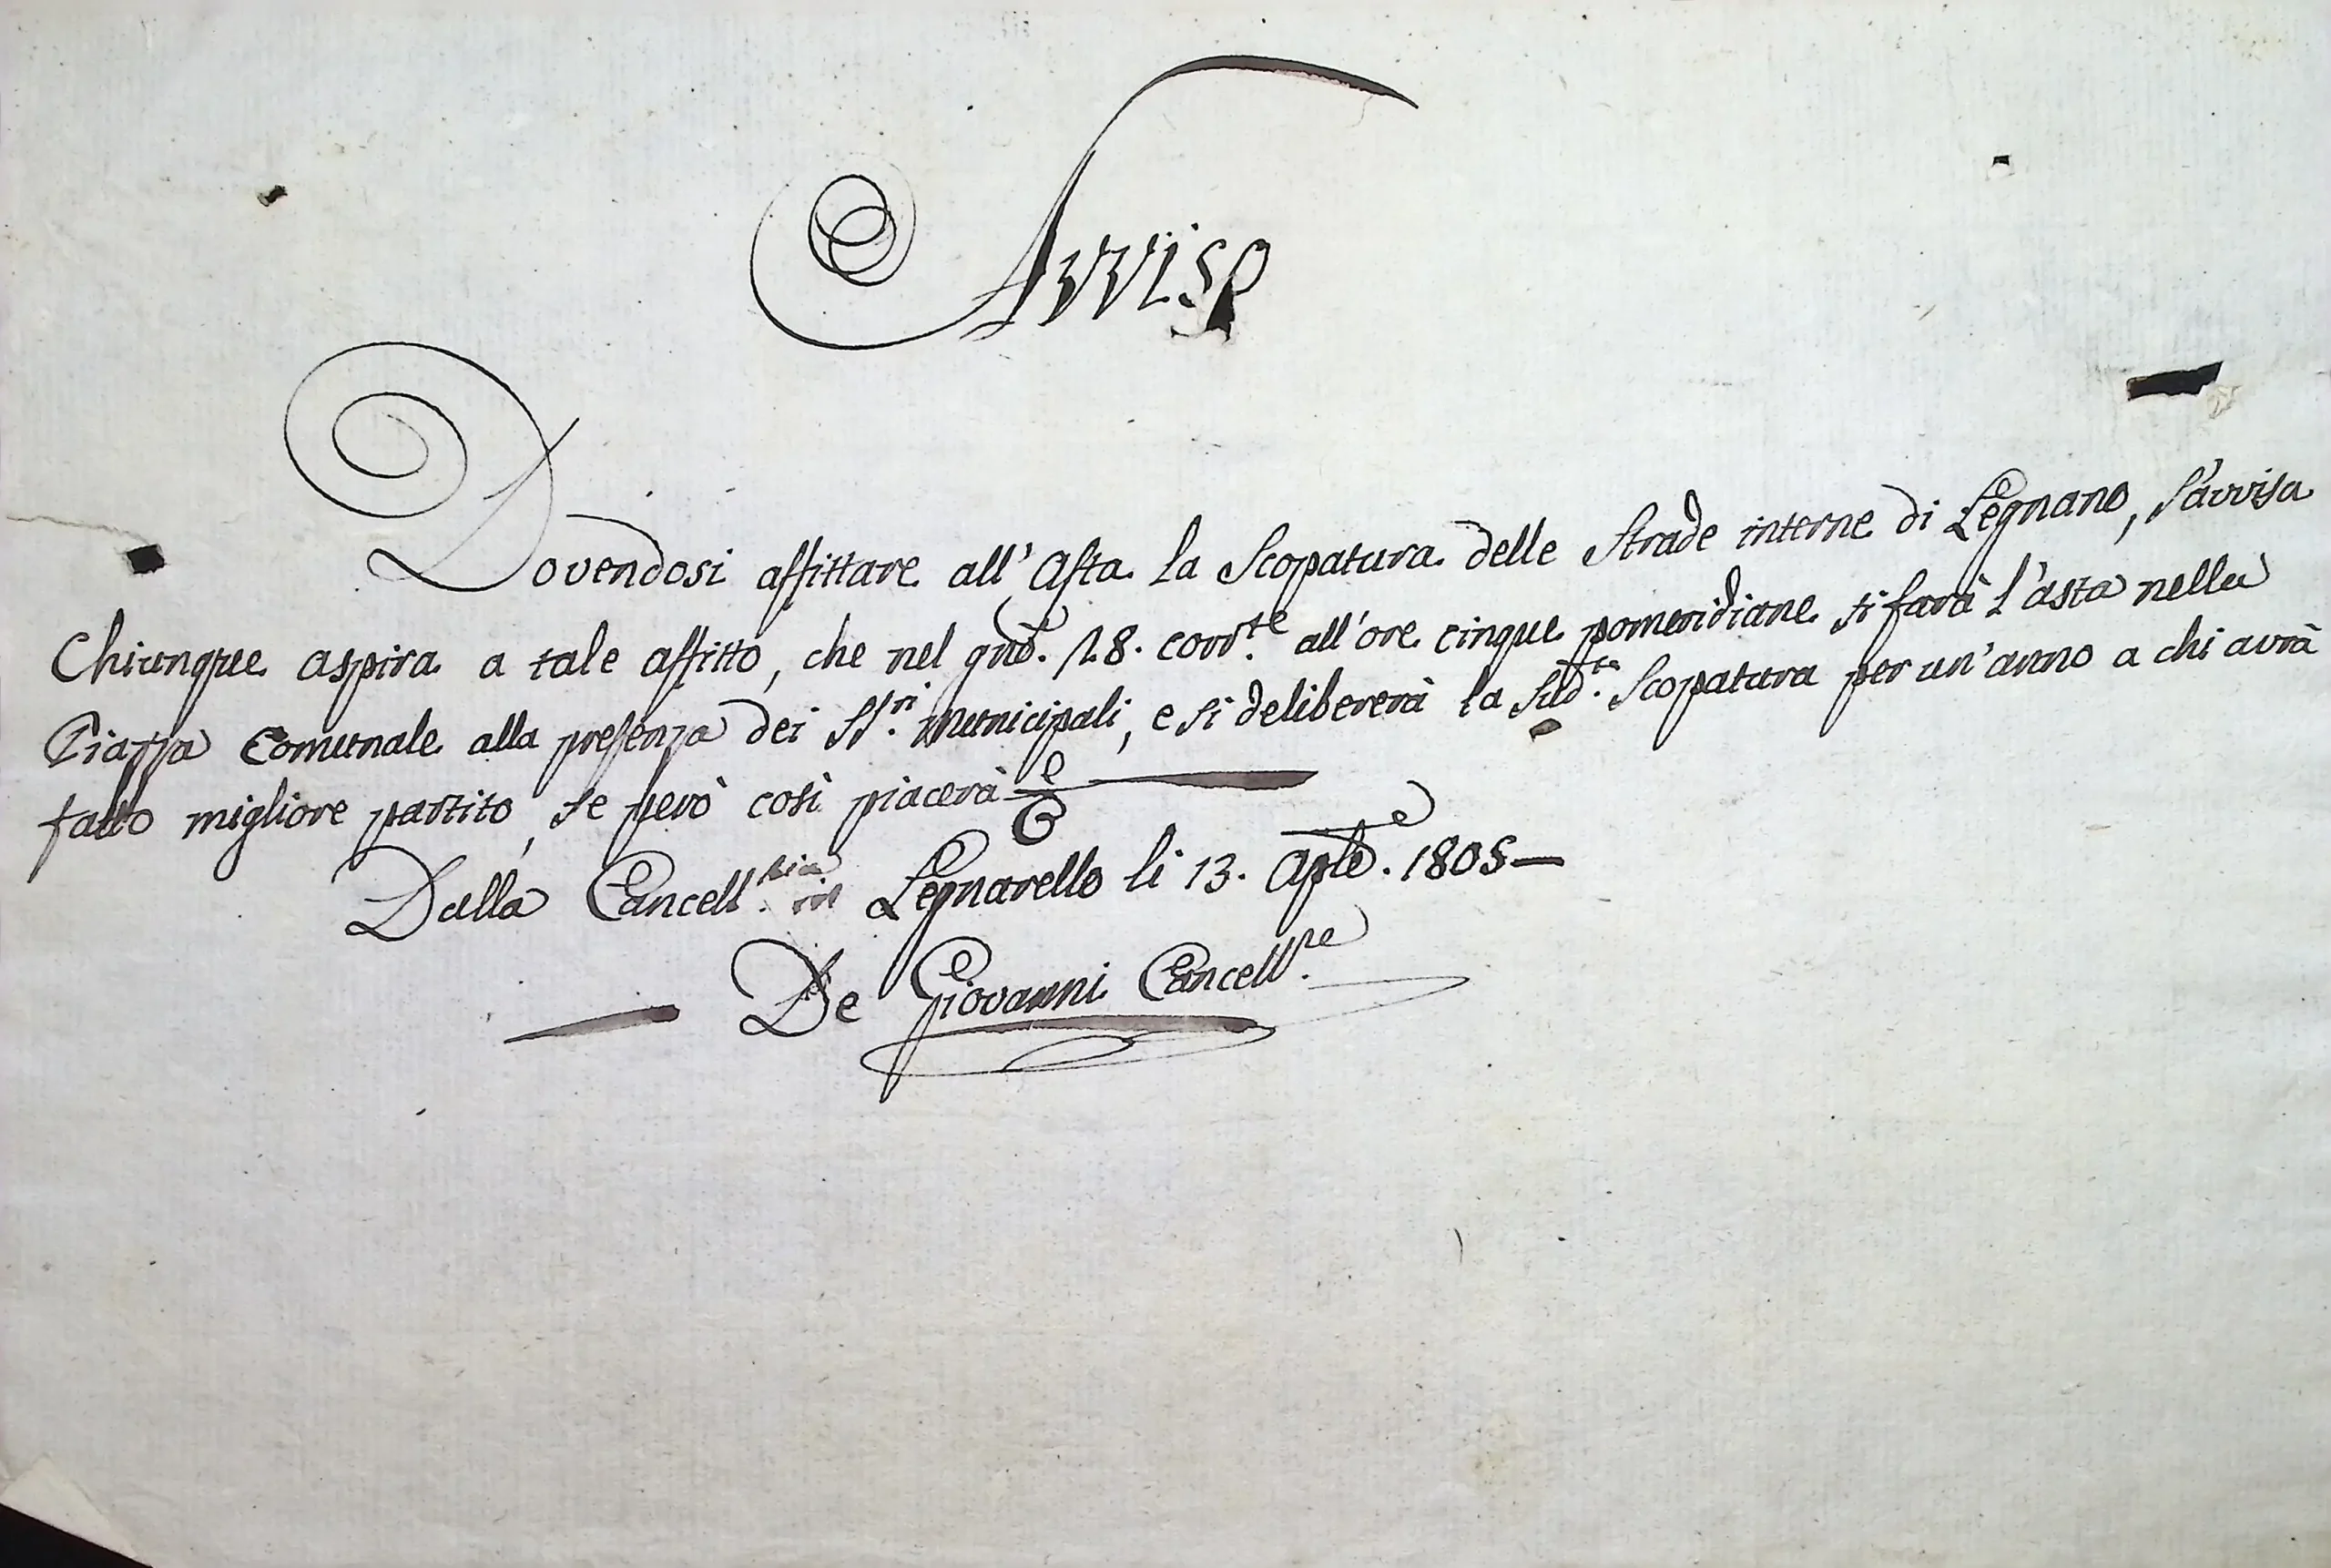 Avviso
Dovendosi affittare all'Asta la Scopatura delle Strade interne di Legnano, s'avvisa
Chiunque aspira a tale affitto, che nel gno. 28. corr.te all'ore cinque pomeridiane si farà l'asta nella
Piazza Comunale alla presenza dei SS.ri Municipali, e si delibererà la sud.ta Scopatura per un'anno a chi avrà
fatto migliore partito, se però così piacerà
Dalla Cancell.ria in Legnarello li 13. Aple. 1805—
De Giovanni Cancell.re